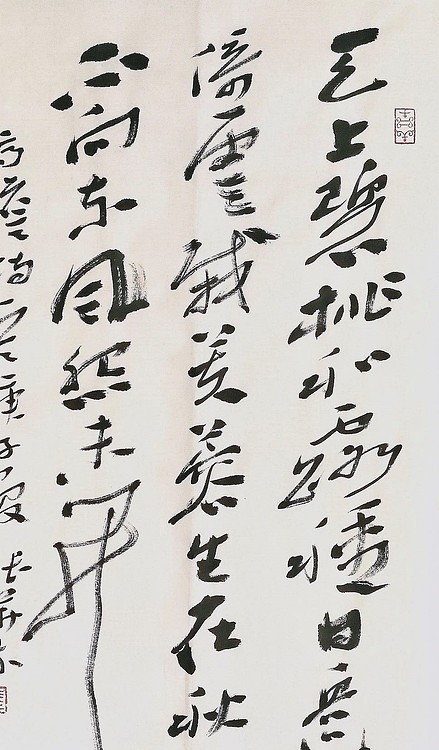 天上碧桃和露種日邊
倚雲栽芙蓉生在秋
不向東風怨未開
高蟾詩一首庚子夏